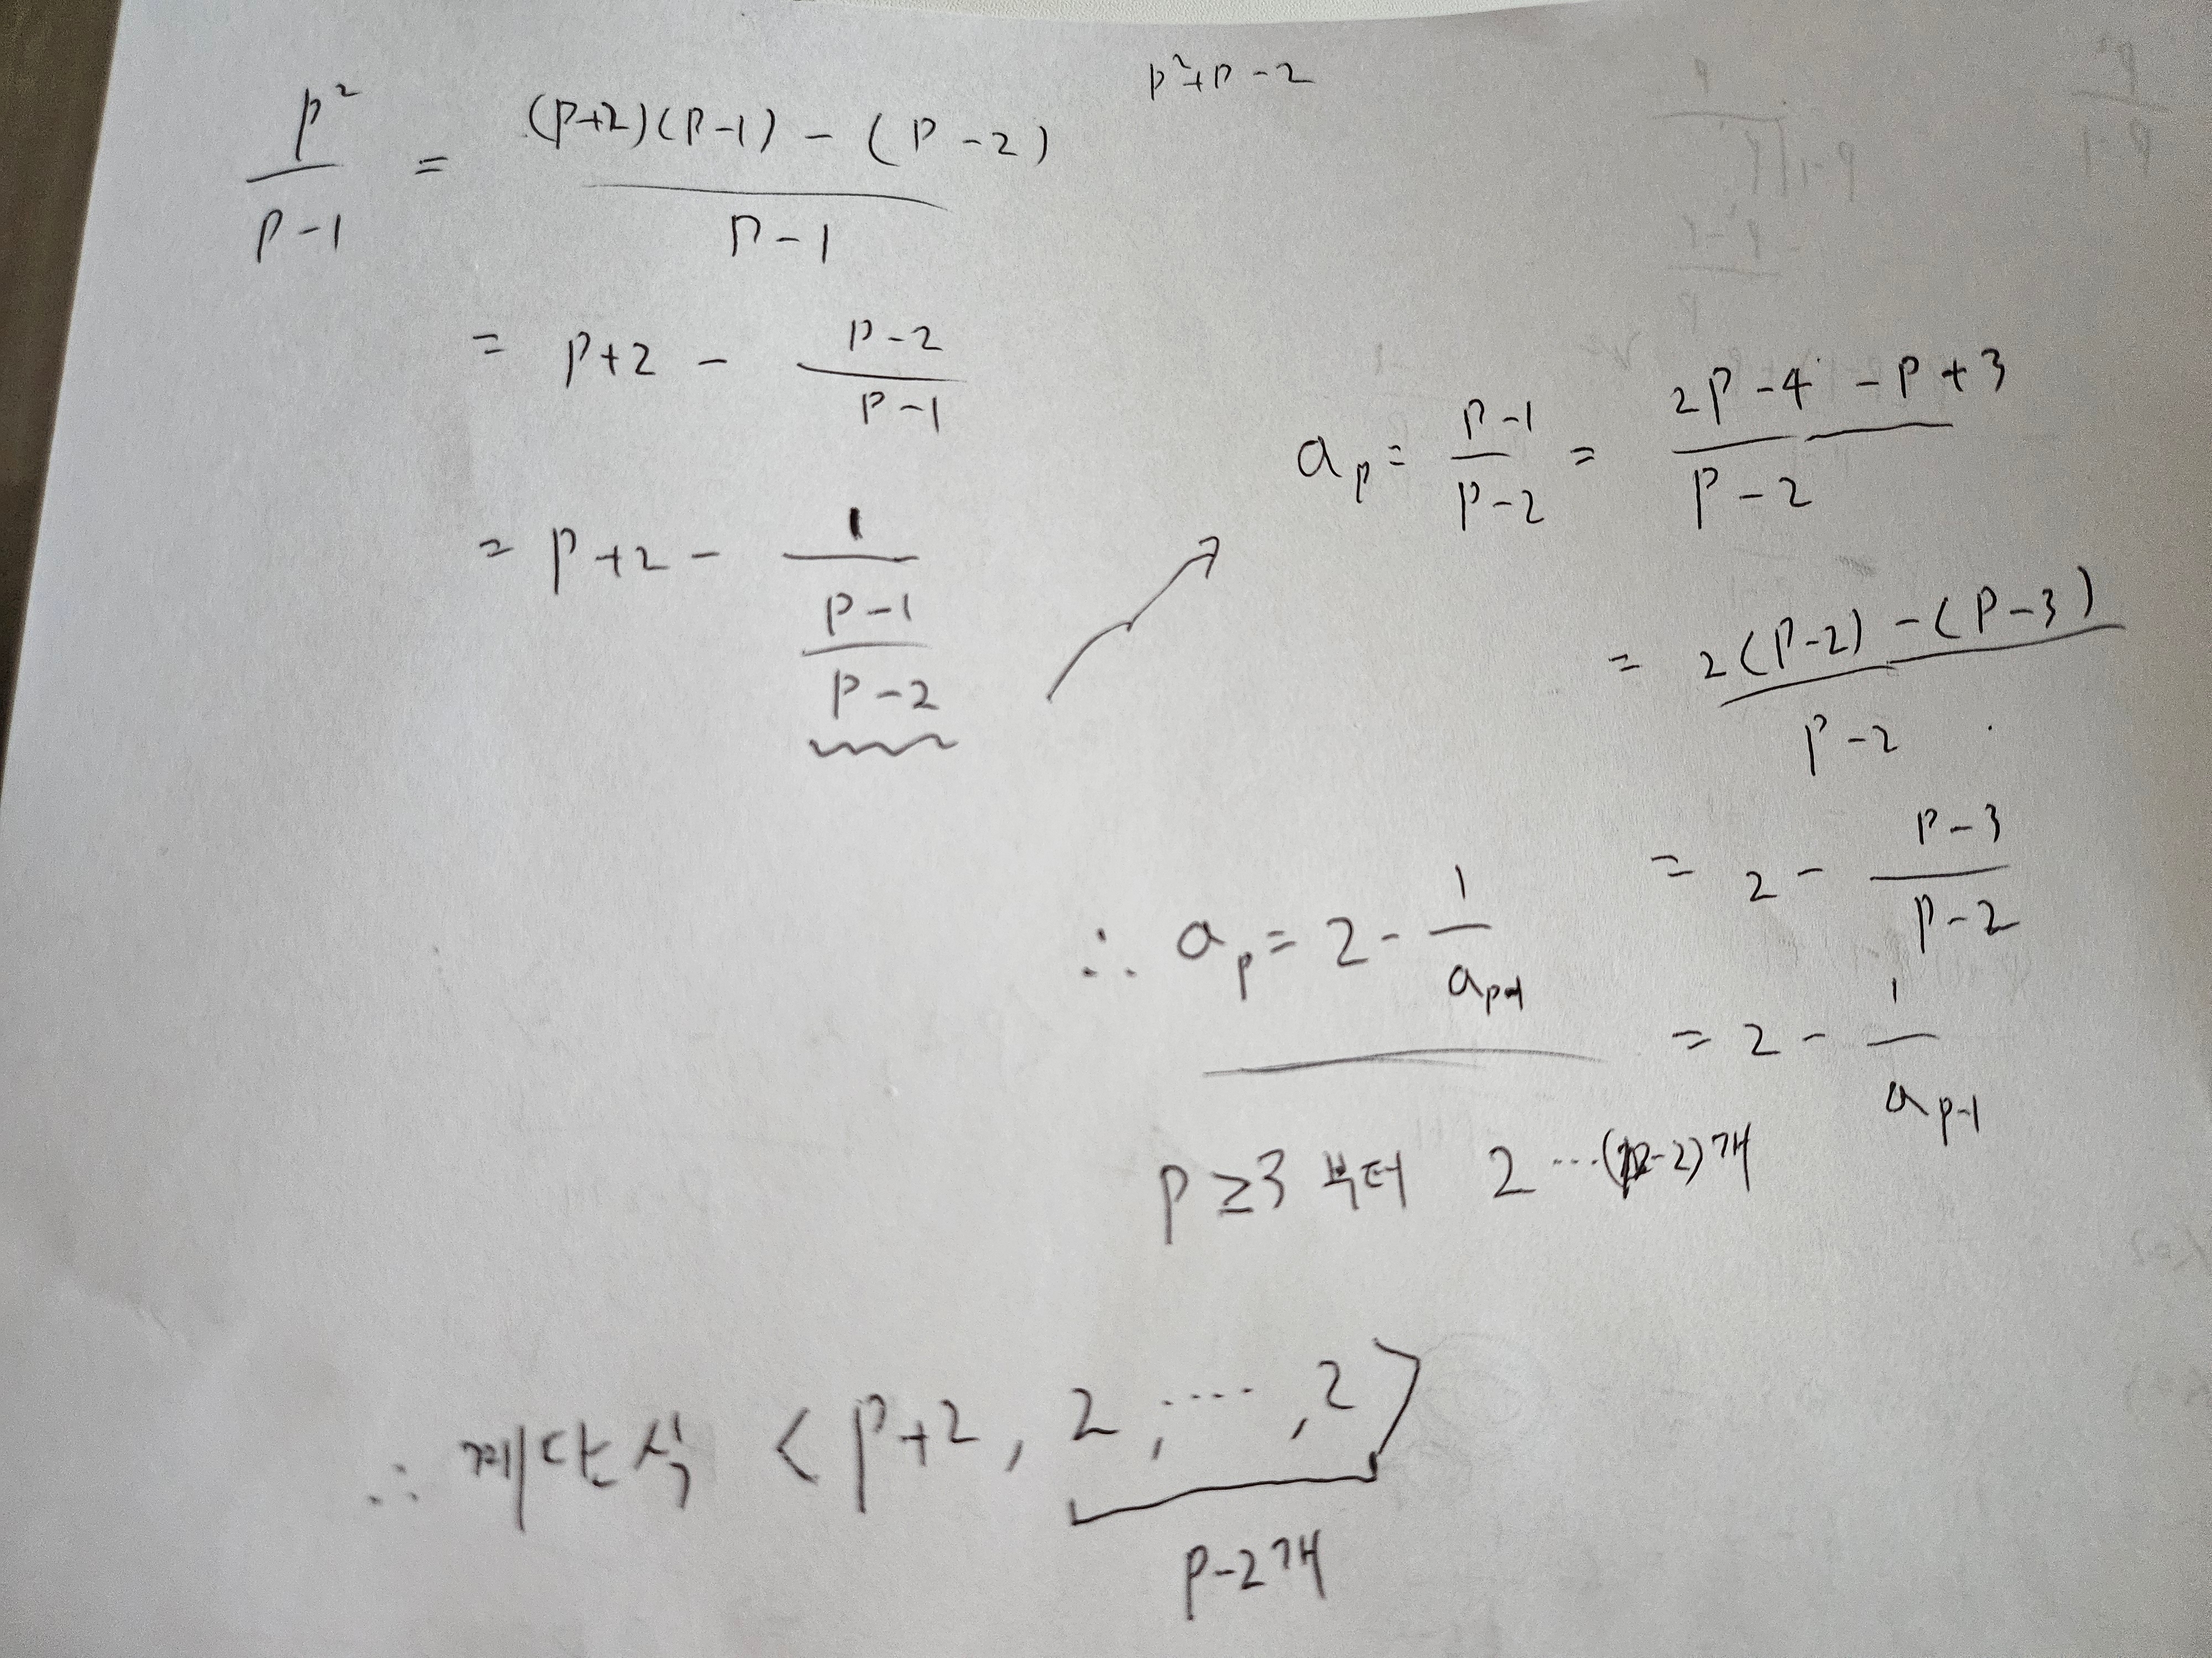 p²+p-2
p²/(p-1) = ((p+2)(p-1) - (p-2))/(p-1)
= p+2 - (p-2)/(p-1)
= p+2 - 1/((p-1)/(p-2))
a_p = (p-1)/(p-2) = (2p-4-p+3)/(p-2)
= (2(p-2)-(p-3))/(p-2)
= 2 - (p-3)/(p-2)
= 2 - 1/a_{p-1}
∴ a_p = 2 - 1/a_{p-1}
p ≥ 3 부터 2 ⋯(p-2)개
∴ 계단식 <p+2, 2, ⋯, 2>
p-2개